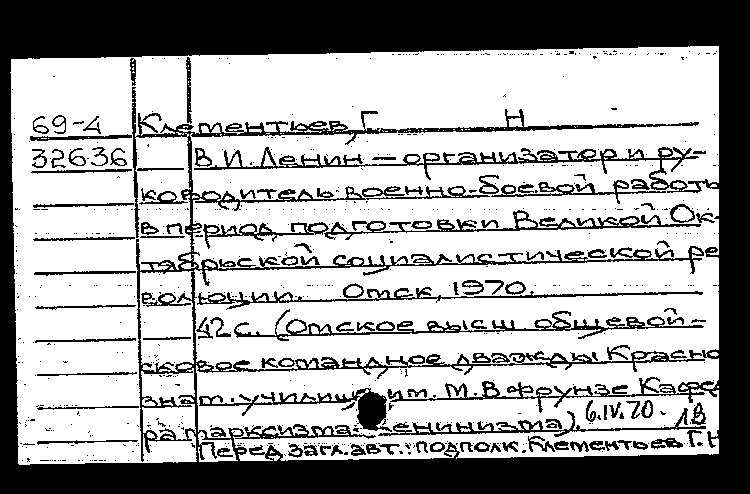 69-4 Клементьев, Г. Н
32636 В.И. Ленин — организатор и ру-
ководитель военно-боевой работы
в период подготовки Великой Ок-
тябрьской социалистической ре
волюции. Омск, 1970.
42 с. (Омское высш общевой-
сковое командное дважды Красно
знам. училище им. М.В Фрунзе Кафед
ра марксизма ленинизма). 6.IV.70. 1В
Перед загл. авт.: подполк. Клементьев Г. Н